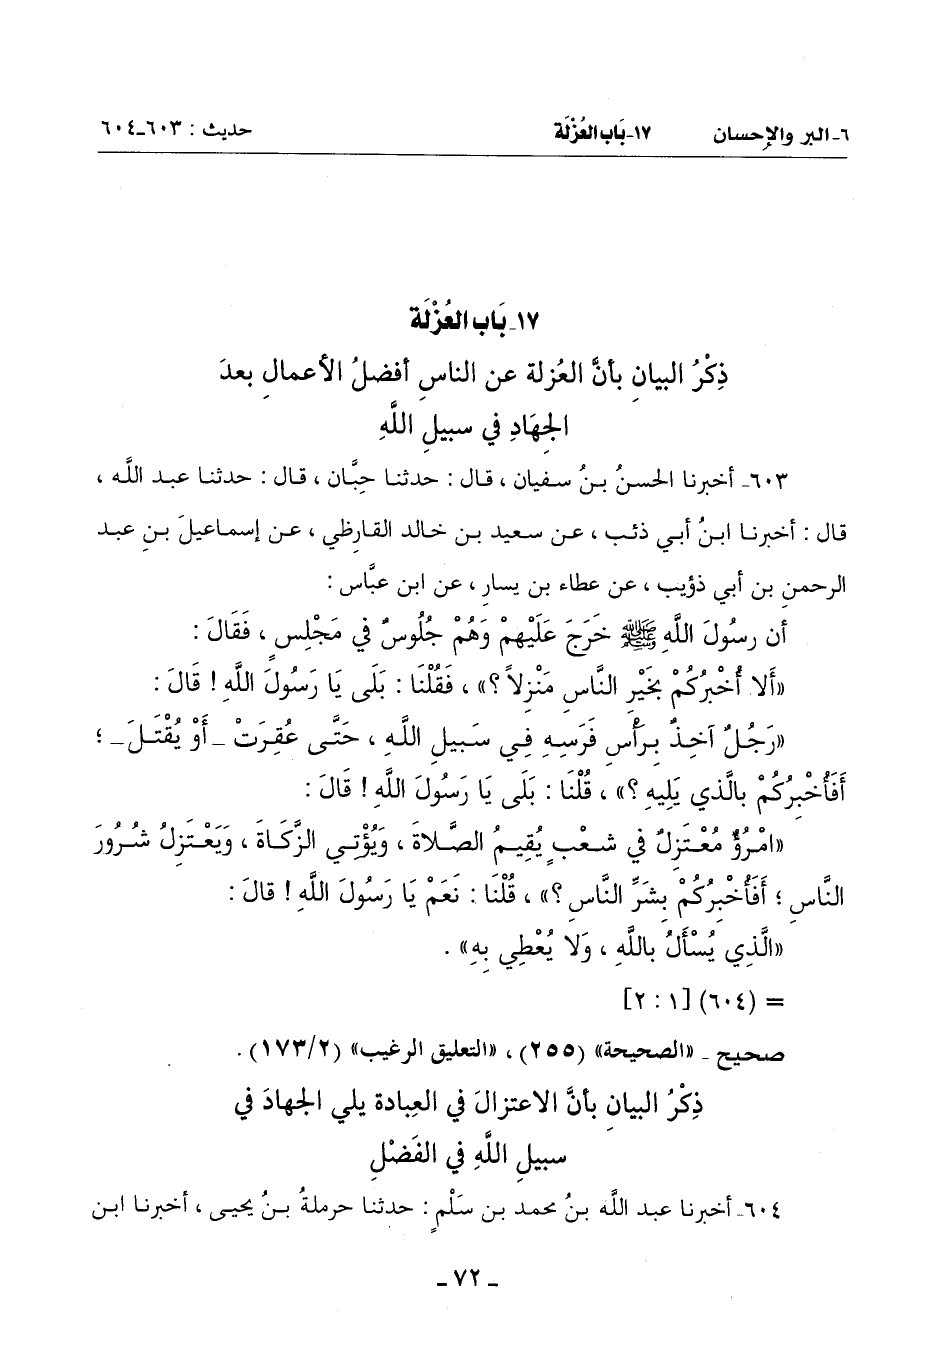 ٦ـ البر والإحسان ١٧ـ بَاب العُزْلَة حديث : ٦٠٣ـ٦٠٤
١٧ـ بَاب العُزْلَة
ذِكْرُ البيانِ بأنَّ العُزلة عن الناسِ أفضلُ الأعمالِ بعدَ
الجِهَادِ في سبيلِ اللَّهِ
٦٠٣ـ أخبرنا الحسنُ بنُ سفيان ، قال : حدثنا حِبَّان ، قال : حدثنا عبد اللَّه ،
قال : أخبرنا ابنُ أبي ذئب ، عن سعيد بن خالد القارظي ، عن إسماعيلَ بنِ عبد
الرحمنِ بن أبي ذؤيب ، عن عطاء بن يسارٍ ، عن ابن عبَّاس :
أن رسُولَ اللَّهِ ﷺ خَرَجَ عَلَيْهِمْ وَهُمْ جُلُوسٌ في مَجْلِسٍ ، فَقَالَ :
«أَلا أُخْبِرُكُمْ بِخَيْرِ النَّاسِ مَنْزِلاً ؟» ، فَقُلْنَا : بَلَى يَا رَسُولَ اللَّهِ ! قَالَ :
«رَجُلٌ آخِذٌ بِرَأْسِ فَرَسِهِ فِي سَبِيلِ اللَّهِ ، حَتَّى عُقِرَتْ ـ أَوْ يُقْتَلَ ـ ؛
أَفَأُخْبِرُكُمْ بِالَّذي يَلِيهِ ؟» ، قُلْنَا : بَلَى يَا رَسُولَ اللَّهِ ! قَالَ :
«امْرُؤٌ مُعْتَزِلٌ في شعْبٍ يُقِيمُ الصَّلاةَ ، وَيُؤْتِي الزَّكَاةَ ، وَيَعْتَزِلُ شُرُورَ
النَّاسِ ؛ أَفَأُخْبِرُكُمْ بِشَرِّ النَّاسِ ؟» ، قُلْنَا : نَعَمْ يَا رَسُولَ اللَّهِ ! قالَ :
«الَّذِي يُسْأَلُ بِاللَّهِ ، وَلا يُعْطِي بِهِ» .
= (٦٠٤) [١ : ٢]
صحيح ـ «الصحيحة» (٢٥٥) ، «التعليق الرغيب» (٢/١٧٣) .
ذِكْرُ البيانِ بأنَّ الاعتزالَ في العِبادة يلي الجهادَ في
سبيلِ اللَّهِ في الفَضْلِ
٦٠٤ـ أخبرنا عبد اللَّه بنُ محمد بن سَلْمٍ : حدثنا حرملةُ بنُ يحيى ، أخبرنا ابن
ـ ٧٢ ـ